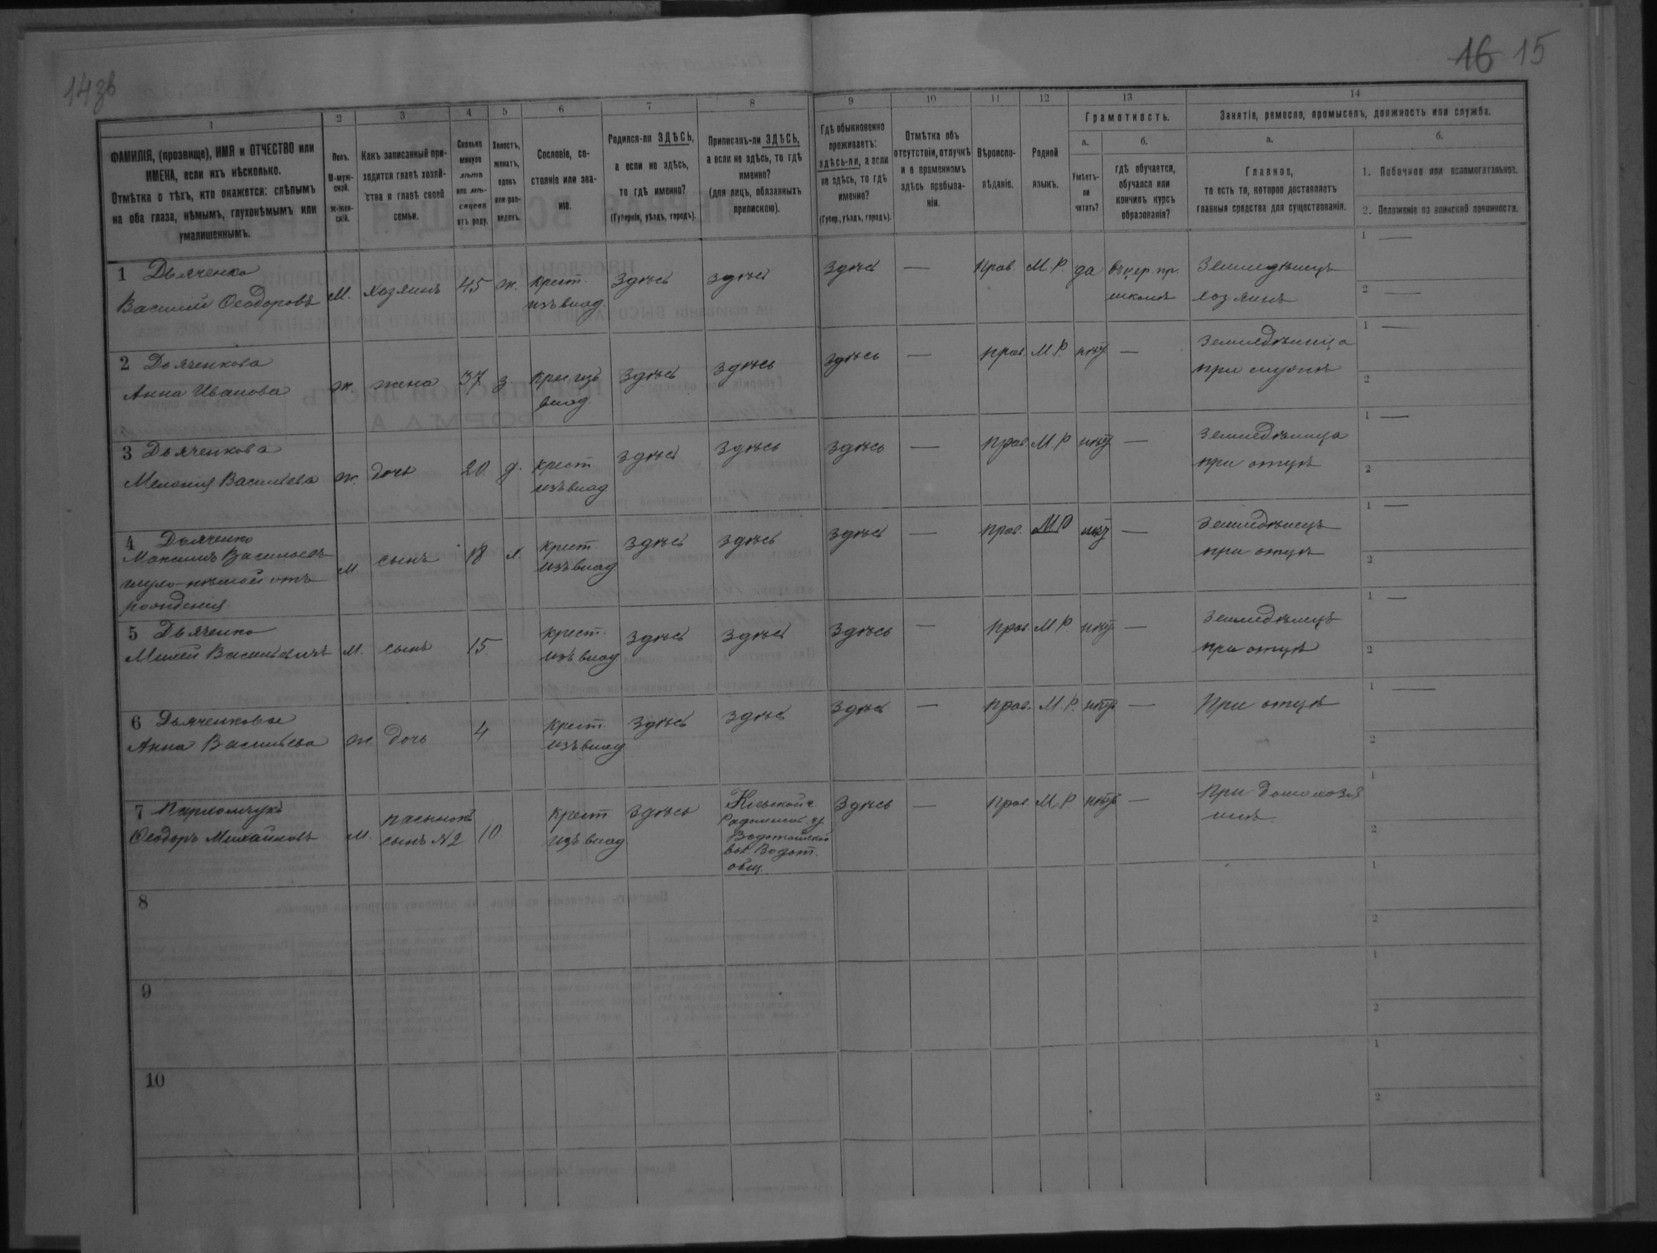 143б
16 15
1
ФАМИЛІЯ, (прозвище), ИМЯ и ОТЧЕСТВО или
ИМЕНА, если ихъ нѣсколько.
Отмѣтка о тѣхъ, кто окажется: слѣпымъ
на оба глаза, нѣмымъ, глухонѣмымъ или
умалишеннымъ.
2
Полъ.
М-муж-
ской.
Ж-жен-
скій.
3
Какъ записанный при-
ходится главѣ хозяй-
ства и главѣ своей
семьи.
4
Сколько
минуло
лѣтъ
или мѣ-
сяцевъ
отъ роду.
5
Холостъ,
женатъ,
вдовъ
или раз-
веденъ.
6
Сословіе, со-
стояніе или зва-
ніе.
7
Родился-ли ЗДѢСЬ,
а если не здѣсь,
то гдѣ именно?
(Губернія, уѣздъ, городъ).
8
Приписанъ-ли ЗДѢСЬ,
а если не здѣсь, то гдѣ
именно?
(для лицъ, обязанныхъ
припискою).
9
Гдѣ обыкновенно
проживаетъ:
здѣсь-ли, а если
не здѣсь, то гдѣ
именно?
(Губер., уѣздъ, городъ).
10
Отмѣтка объ
отсутствіи, отлучкѣ
и о временномъ
здѣсь пребыва-
ніи.
11
Вѣроиспо-
вѣданіе.
12
Родной
языкъ.
13
Грамотность.
а.
Умѣетъ-
ли
читать?
б.
гдѣ обучается,
обучался или
кончилъ курсъ
образованія?
14
Занятіе, ремесло, промыселъ, должность или служба.
а.
Главное,
то есть то, которое доставляетъ
главныя средства для существованія.
б.
1. Побочное или вспомогательное.
2. Положеніе по воинской повинности.
1 Дьяченко
Василій Ѳеодоровъ М. хозяинъ 45 ж. крест. изъ влад здѣсь здѣсь здѣсь — прав. М.Р. да въ цер. пр. школѣ Земледѣлецъ хозяинъ 1 — 2 —
2 Дьяченкова
Анна Иванова ж. жена 37 з крес изъ влад здѣсь здѣсь здѣсь — прав. М.Р. нѣтъ — Земледѣлица при мужѣ 1 — 2
3 Дьяченкова
Меланія Васильева ж. дочь 20 д. крест изъ влад здѣсь здѣсь здѣсь — прав М.Р. нѣтъ — Земледѣлица при отцѣ 1 — 2
4 Дьяченко
Максимъ Васильевъ
глухо-нѣмой отъ
рожденія М сынъ 18 х. крест. изъ влад здѣсь здѣсь здѣсь — прав. М.Р нѣтъ — Земледѣлецъ при отцѣ 1 — 2
5 Дьяченко
Васильевъ М. сынъ 15 крест. изъ влад здѣсь здѣсь здѣсь — прав М.Р. нѣтъ — Земледѣлецъ при отцѣ 1 — 2
6 Дьяченкова
Анна Васильева ж дочь 4 крест. изъ влад здѣсь здѣсь здѣсь — прав. М.Р. нѣтъ — При отцѣ 1 — 2
7
Ѳеодоръ М. пасынокъ сынъ №2 10 крест изъ влад здѣсь Кіевской г. Радомысл. у. вол. общ. здѣсь — прав. М.Р нѣтъ — При 1 2
8 1 2
9 1 2
10 1 2